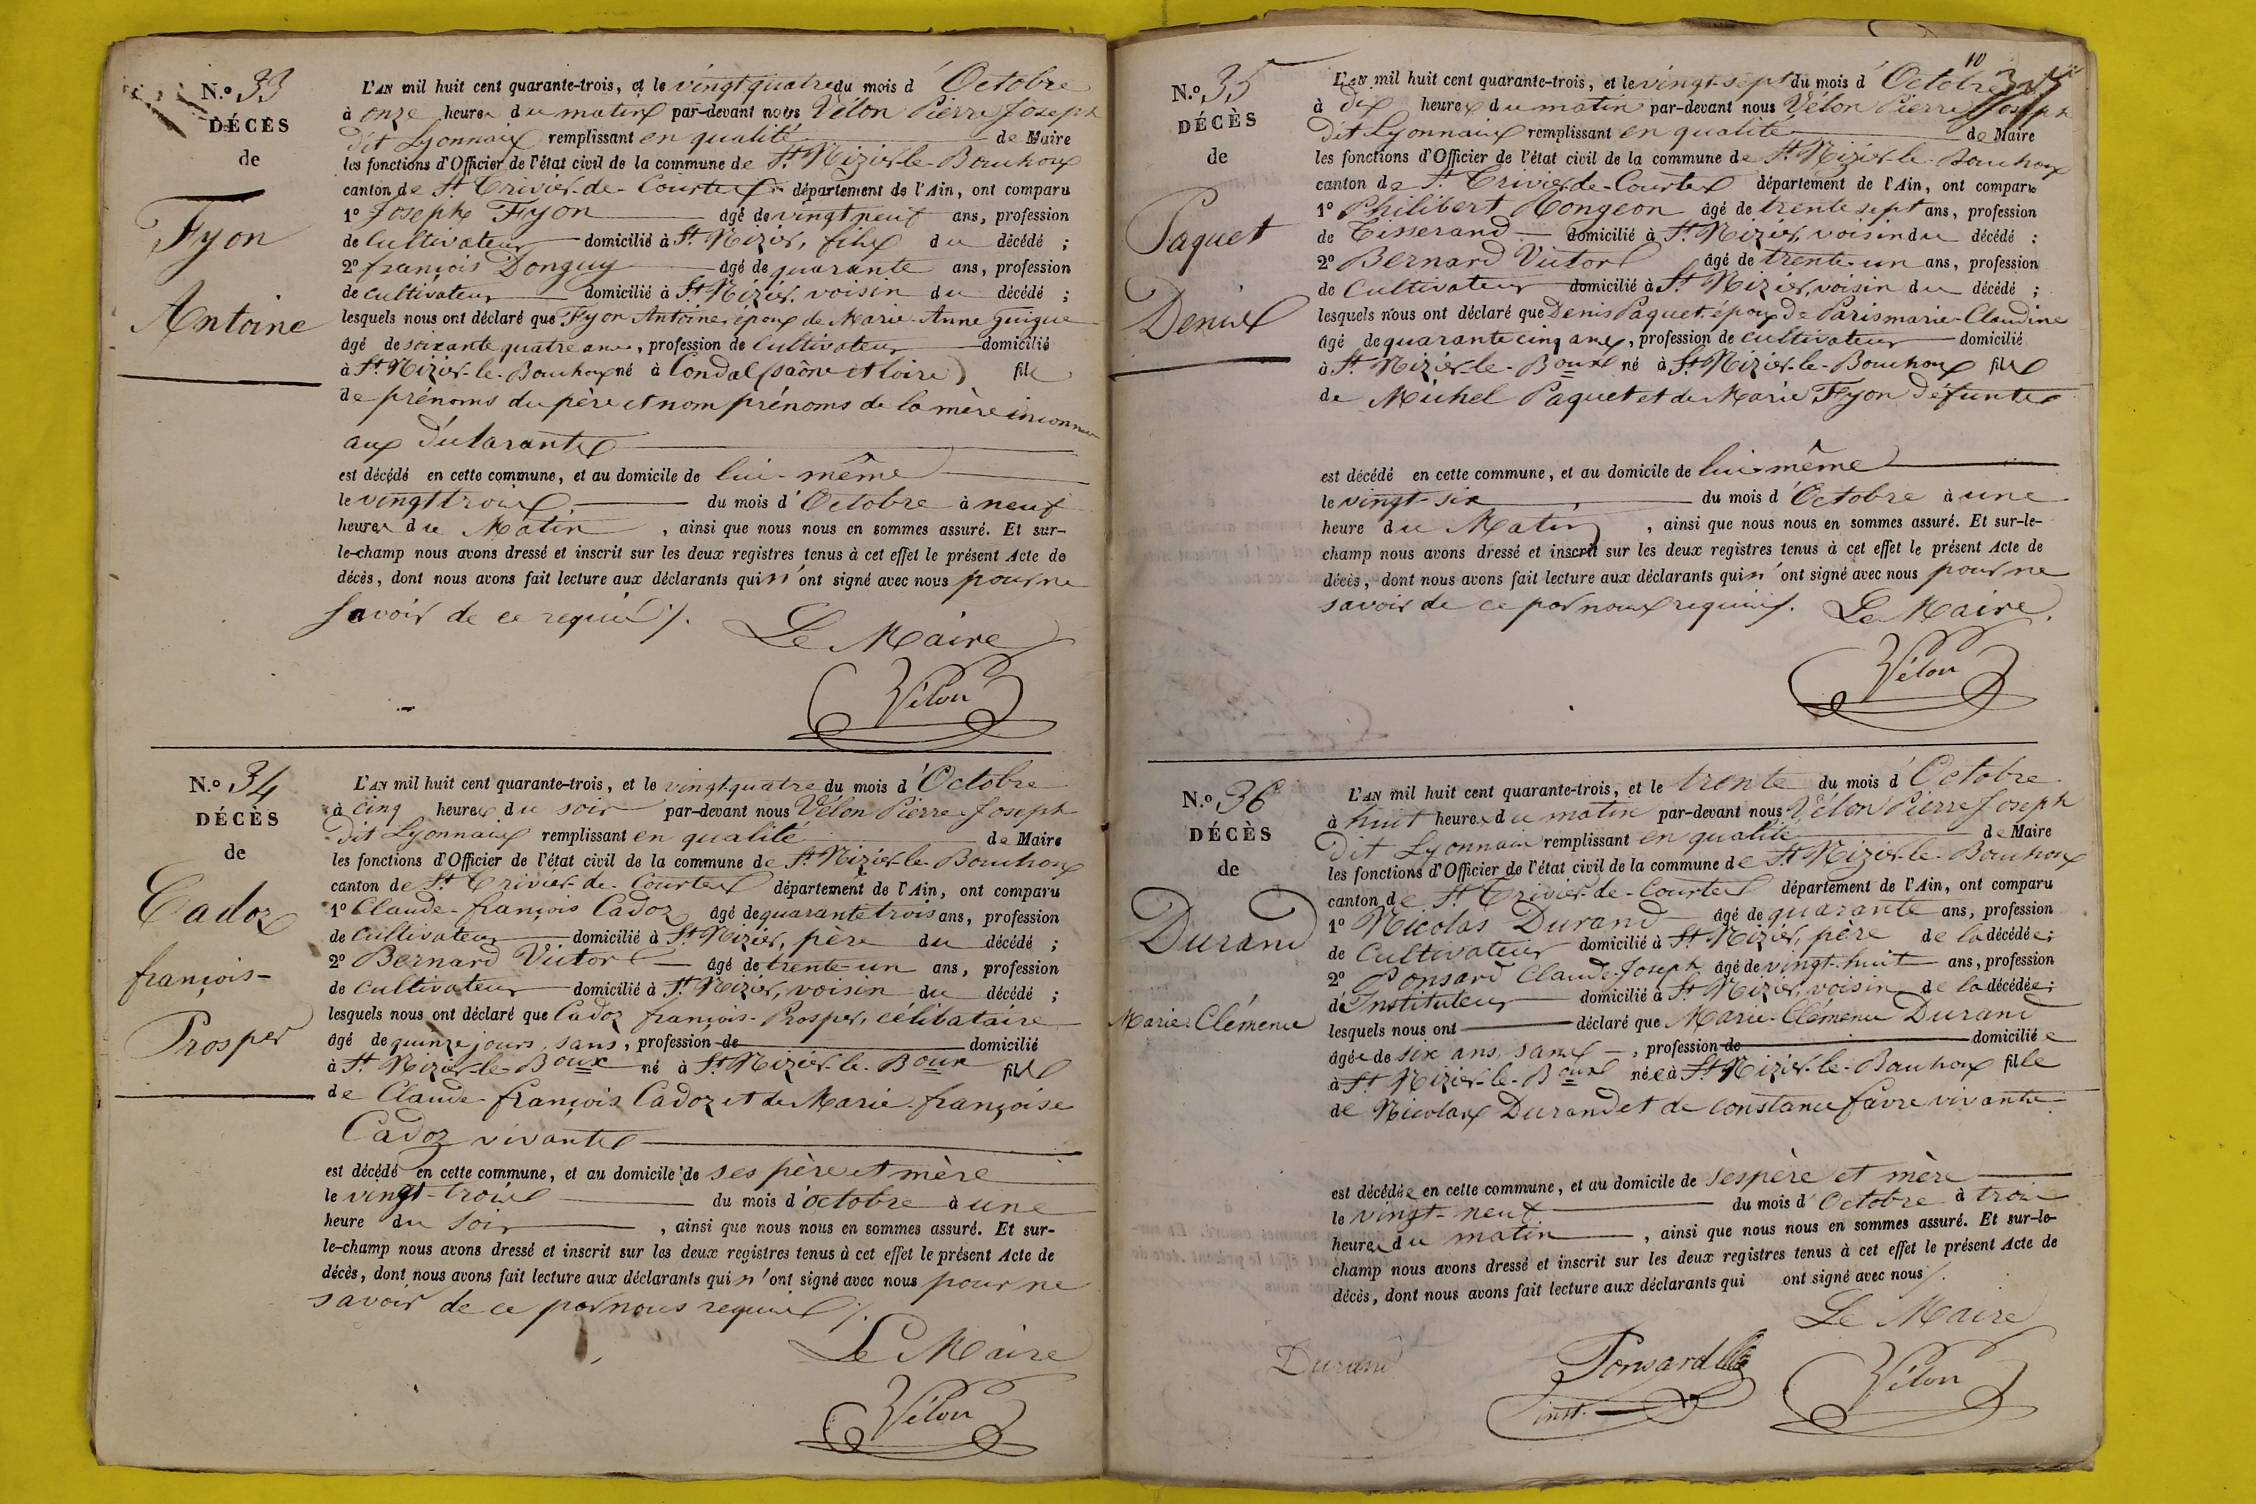 N.º 33
DÉCÈS
de
Fyon
Antoine
L'AN mil huit cent quarante-trois, et le vingt quatre du mois d'Octobre
à onze heures du matin par-devant nous Vélon Pierre Joseph
dit Lyonnais remplissant en qualité de Maire
les fonctions d'Officier de l'état civil de la commune de St. Nizier-le-Bouchoux
canton de St Trivier-de-Courtes département de l'Ain, ont comparu
1º Joseph Fyon âgé de vingt neuf ans, profession
de Cultivateur domicilié à St. Nizier, fils du décédé ;
2º françois Donguy âgé de quarante ans, profession
de cultivateur domicilié à St. Nizier, voisin du décédé ;
lesquels nous ont déclaré que Fyon Antoine, époux de Marie-Anne Guigue
âgé de soixante quatre ans, profession de Cultivateur domicilié
à St. Nizier-le-Bouchoux né à Condal (saône et loire) fils
de prénoms du père et nom prénoms de la mère inconnus
aux déclarants
est décédé en cette commune, et au domicile de lui-même
le vingt trois du mois d'Octobre à neuf
heures du Matin, ainsi que nous nous en sommes assuré. Et sur-
le-champ nous avons dressé et inscrit sur les deux registres tenus à cet effet le présent Acte de
décès, dont nous avons fait lecture aux déclarants qui n'ont signé avec nous pour ne
savoir de ce requis ./.
Le Maire
Vélon
N.º 34
DÉCÈS
de
Cadoz
françois-
Prosper
L'AN mil huit cent quarante-trois, et le vingt-quatre du mois d'Octobre
à cinq heures du soir par-devant nous Vélon Pierre Joseph
dit Lyonnais remplissant en qualité de Maire
les fonctions d'Officier de l'état civil de la commune de St. Nizier-le-Bouchoux
canton de St. Trivier-de-Courtes département de l'Ain, ont comparu
1º Claude-françois Cadoz âgé de quarante trois ans, profession
de Cultivateur domicilié à St. Nizier, père du décédé ;
2º Bernard Victor âgé de trente-un ans, profession
de cultivateur domicilié à St. Nizier, voisin du décédé ;
lesquels nous ont déclaré que Cadoz françois-Prosper, célibataire
âgé de quinze jours, sans, profession de domicilié
à St. Nizier-le-Boux né à St. Nizier-le-Boux fils
de Claude-françois Cadoz et de Marie-françoise
Cadoz vivants
est décédé en cette commune, et au domicile de ses père et mère
le vingt-trois du mois d'octobre à une
heure du Soir, ainsi que nous nous en sommes assuré. Et sur-
le-champ nous avons dressé et inscrit sur les deux registres tenus à cet effet le présent Acte de
décès, dont nous avons fait lecture aux déclarants qui n'ont signé avec nous pour ne
savoir de ce par nous requis ./.
Le Maire
Vélon
10
N.º 35
DÉCÈS
de
Paquet
Denis
L'AN mil huit cent quarante-trois, et le vingt-sept du mois d'Octobre
à dix heures du matin par-devant nous Vélon Pierre Joseph
dit Lyonnais remplissant en qualité de Maire
les fonctions d'Officier de l'état civil de la commune de St. Nizier-le-Bouchoux
canton de St. Trivier-de-Courtes département de l'Ain, ont comparu
1º Philibert Rongeon âgé de trente sept ans, profession
de Tisserand domicilié à St. Nizier, voisin du décédé ;
2º Bernard Victor âgé de trente-un ans, profession
de Cultivateur domicilié à St. Nizier, voisin du décédé ;
lesquels nous ont déclaré que Denis Paquet époux de Paris marie-Claudine
âgé de quarante cinq ans, profession de cultivateur domicilié
à St. Nizier-le-Boux né à St. Nizier-le-Bouchoux fils
de Michel Paquet et de Marie Fyon défunts
est décédé en cette commune, et au domicile de lui-même
le vingt-six du mois d'Octobre à une
heure du Matin, ainsi que nous nous en sommes assuré. Et sur-le-
champ nous avons dressé et inscrit sur les deux registres tenus à cet effet le présent Acte de
décès, dont nous avons fait lecture aux déclarants qui n'ont signé avec nous pour ne
savoir de ce par nous requis ./. Le Maire.
Vélon
N.º 36
DÉCÈS
de
Durand
Marie-Clémence
L'AN mil huit cent quarante-trois, et le trente du mois d'Octobre
à huit heures du matin par-devant nous Vélon Pierre Joseph
dit Lyonnais remplissant en qualité de Maire
les fonctions d'Officier de l'état civil de la commune de St. Nizier-le-Bouchoux
canton de St. Trivier-de-Courtes département de l'Ain, ont comparu
1º Nicolas Durand âgé de quarante ans, profession
de Cultivateur domicilié à St Nizier, père de la décédée ;
2º Ponsard Claude-Joseph âgé de vingt-huit ans, profession
d'Instituteur domicilié à St Nizier, voisin de la décédée ;
lesquels nous ont déclaré que Marie-Clémence Durand
âgée de six ans, sans, profession de domiciliée
à St Nizier-le-Boux née à St. Nizier-le-Bouchoux fille
de Nicolas Durand et de constance favre vivants
est décédée en cette commune, et au domicile de ses père et mère
le vingt-neuf du mois d'Octobre à trois
heures du matin, ainsi que nous nous en sommes assuré. Et sur-le-
champ nous avons dressé et inscrit sur les deux registres tenus à cet effet le présent Acte de
décès, dont nous avons fait lecture aux déclarants qui ont signé avec nous ./.
Le Maire
Durand
Ponsard
inst.
Vélon